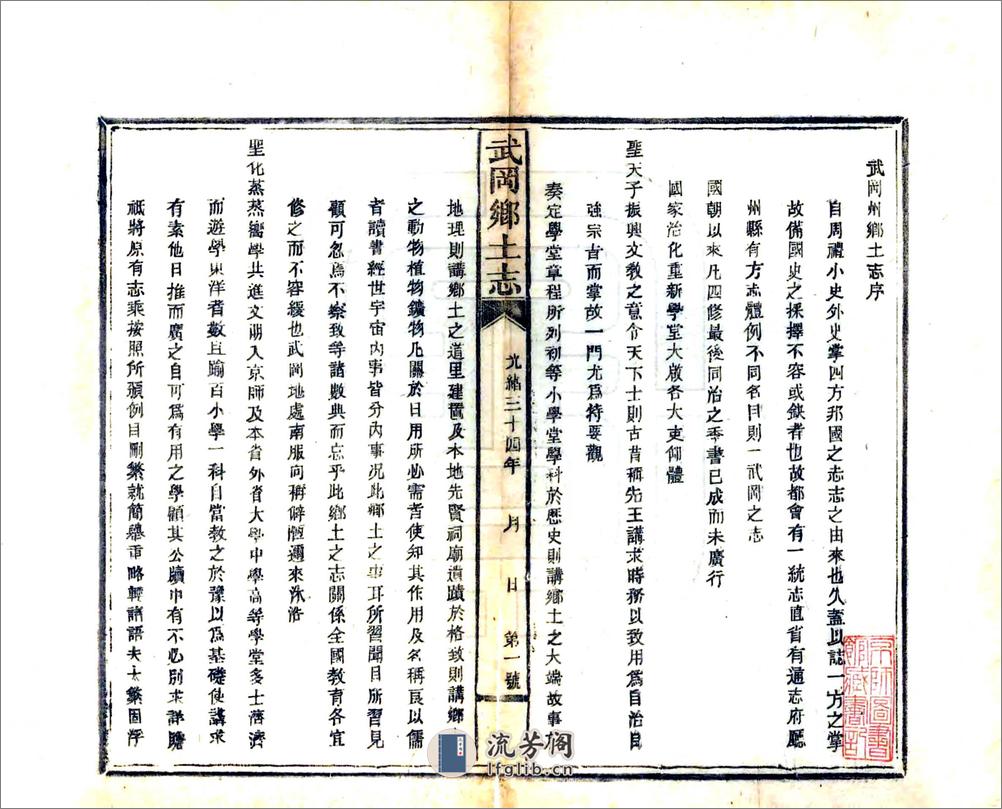 武岡州鄉土志序
自周禮小史外史掌四方邦國之志志之由來也久蓋以誌一方之掌
故備國史之採擇不容或缺者也故都會有一統志直省有通志府廳
州縣有方志體例不同名目則一武岡之志
國朝以來凡四修最後同治之季書已成而未廣行
國家治化重新學堂大啟各大吏仰體
聖天子振興文教之意令天下士則古昔稱先王講求時務以致用為自治自
強宗旨而掌故一門尤為特要觀
奏定學堂章程所列初等小學堂學科於歷史則講鄉土之大端故事
武岡鄉土志
光緒三十四年 月 日 第一號
地理則講鄉土之道里建置及本地先賢祠廟遺蹟於格致則講鄉
之動物植物鑛物凡關於日用所必需者使知其作用及名稱良以儒
者讀書經世宇宙內事皆分內事況此鄉土之事耳所習聞目所習見
顧可忽焉不察致等諸數典而忘乎此鄉土之志關係全國教育各宜
修之而不容緩也武岡地處南服向稱僻陋邇來沐浴
聖化蒸蒸嚮學共進文明入京師及本省外省大學中學高等學堂多士濟濟
而遊學東洋者數且踰百小學一科自當教之於豫以為基礎使講求
有素他日推而廣之自可為有用之學顧其公牘中有不必別求詳贍
祇將原有志乘按照所頒例目刪繁就簡舉重略輕諸語夫太繁固浮
京師圖書館藏書記
流芳閣
lfglib.cn